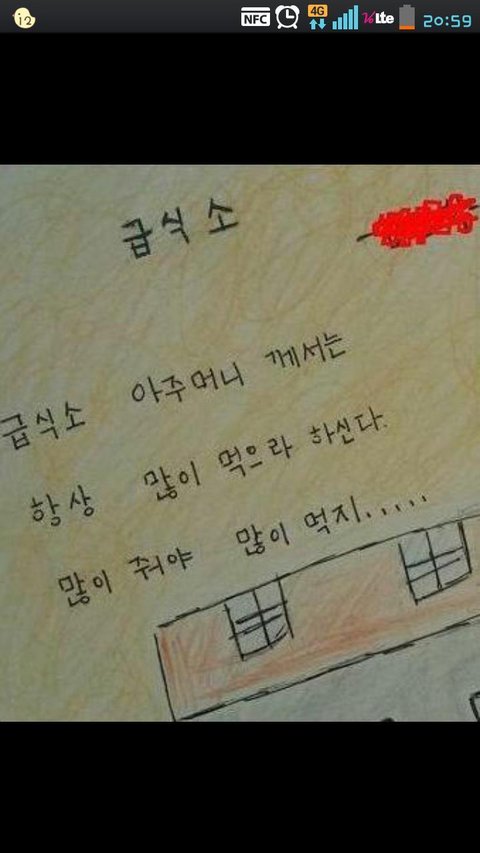 NFC 4G Lte 20:59
급식소
급식소 아주머니 께서는
항상 많이 먹으라 하신다.
많이 줘야 많이 먹지.....